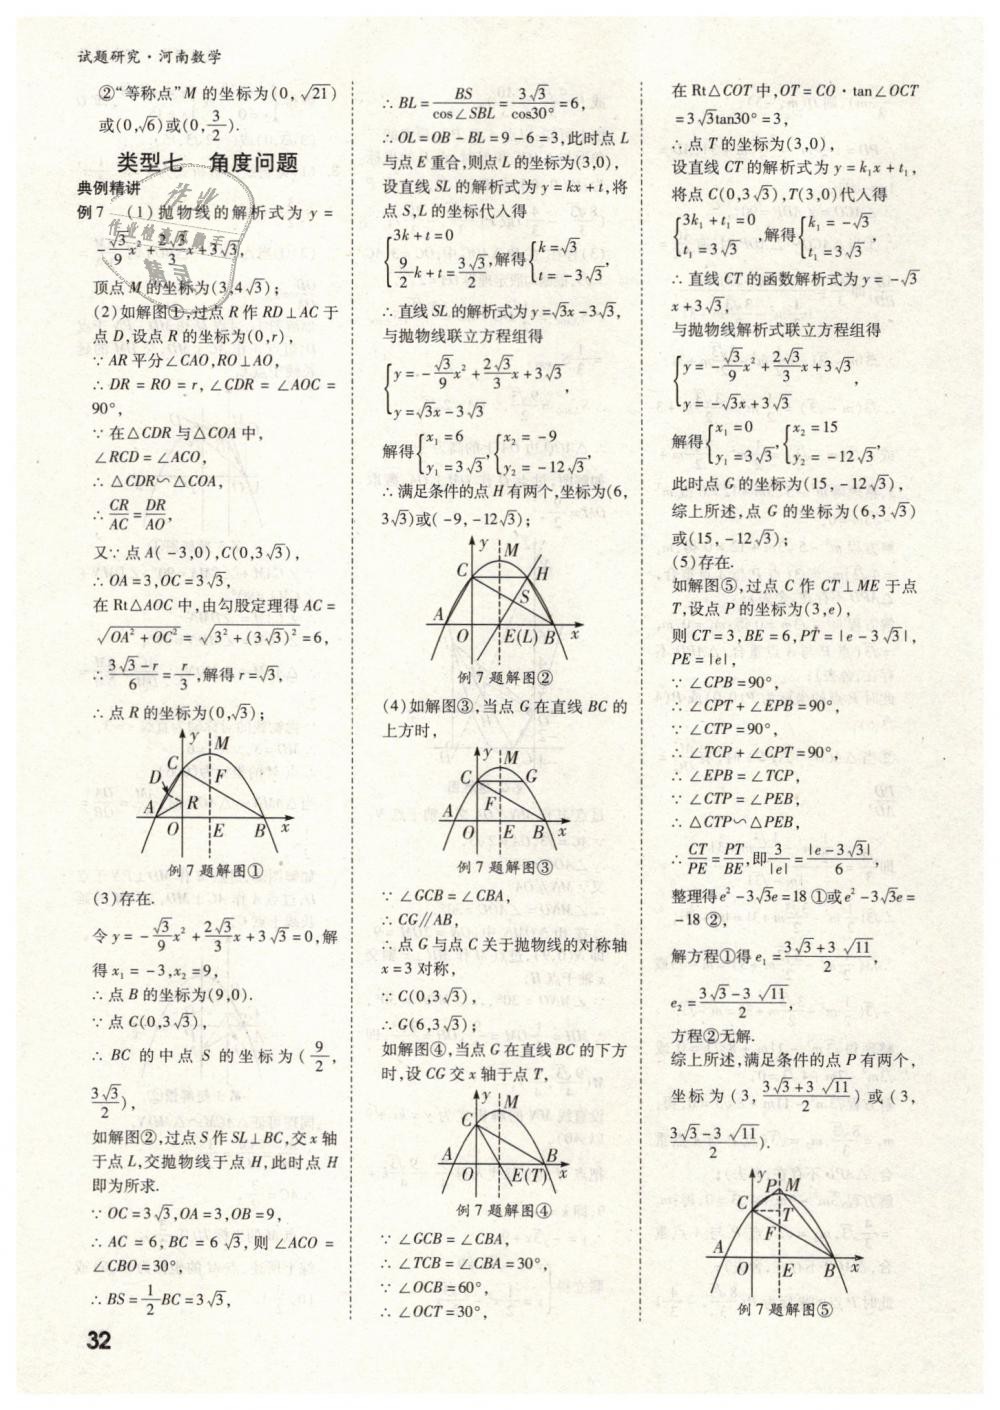 试题研究·河南数学
②“等称点”M 的坐标为(0,√21)
或(0,√6)或(0,3/2).
类型七 角度问题
典例精讲
例7 (1)抛物线的解析式为 y =
-√3/9x²+2√3/3x+3√3,
顶点M的坐标为(3,4√3);
(2)如解图①,过点R作RD⊥AC于
点D,设点R的坐标为(0,r),
∵AR平分∠CAO,RO⊥AO,
∴DR=RO=r,∠CDR=∠AOC=
90°,
∵在△CDR与△COA中,
∠RCD=∠ACO,
∴△CDR∽△COA,
∴CR/AC=DR/AO,
又∵点A(-3,0),C(0,3√3),
∴OA=3,OC=3√3,
在Rt△AOC中,由勾股定理得AC=
√(OA²+OC²)=√(3²+(3√3)²)=6,
∴(3√3-r)/6=r/3,解得r=√3,
∴点R的坐标为(0,√3);
y M C D F R A O E B x
例7题解图①
(3)存在.
令y=-√3/9x²+2√3/3x+3√3=0,解
得x₁=-3,x₂=9,
∴点B的坐标为(9,0).
∵点C(0,3√3),
∴BC的中点S的坐标为(9/2,
3√3/2),
如解图②,过点S作SL⊥BC,交x轴
于点L,交抛物线于点H,此时点H
即为所求.
∵OC=3√3,OA=3,OB=9,
∴AC=6,BC=6√3,则∠ACO=
∠CBO=30°,
∴BS=1/2BC=3√3,
32
∴BL=BS/cos∠SBL=3√3/cos30°=6,
∴OL=OB-BL=9-6=3,此时点L
与点E重合,则点L的坐标为(3,0),
设直线SL的解析式为y=kx+t,将
点S,L的坐标代入得
{3k+t=0
9/2k+t=3√3/2,解得{k=√3
t=-3√3,
∴直线SL的解析式为y=√3x-3√3,
与抛物线联立方程组得
{y=-√3/9x²+2√3/3x+3√3
y=√3x-3√3,
解得{x₁=6
y₁=3√3,{x₂=-9
y₂=-12√3,
∴满足条件的点H有两个,坐标为(6,
3√3)或(-9,-12√3);
y M C H S A O E(L) B x
例7题解图②
(4)如解图③,当点G在直线BC的
上方时,
y M C G F A O E B x
例7题解图③
∵∠GCB=∠CBA,
∴CG∥AB,
∴点G与点C关于抛物线的对称轴
x=3对称,
∵C(0,3√3),
∴G(6,3√3);
如解图④,当点G在直线BC的下方
时,设CG交x轴于点T,
y M C A B O E(T) x
例7题解图④
∵∠GCB=∠CBA,
∴∠TCB=∠CBA=30°,
∵∠OCB=60°,
∴∠OCT=30°,
在Rt△COT中,OT=CO·tan∠OCT
=3√3tan30°=3,
∴点T的坐标为(3,0),
设直线CT的解析式为y=k₁x+t₁,
将点C(0,3√3),T(3,0)代入得
{3k₁+t₁=0
t₁=3√3,解得{k₁=-√3
t₁=3√3,
∴直线CT的函数解析式为y=-√3
x+3√3,
与抛物线解析式联立方程组得
{y=-√3/9x²+2√3/3x+3√3
y=-√3x+3√3,
解得{x₁=0
y₁=3√3,{x₂=15
y₂=-12√3,
此时点G的坐标为(15,-12√3),
综上所述,点G的坐标为(6,3√3)
或(15,-12√3);
(5)存在.
如解图⑤,过点C作CT⊥ME于点
T,设点P的坐标为(3,e),
则CT=3,BE=6,PT=|e-3√3|,
PE=|e|,
∵∠CPB=90°,
∴∠CPT+∠EPB=90°,
∵∠CTP=90°,
∴∠TCP+∠CPT=90°,
∴∠EPB=∠TCP,
∵∠CTP=∠PEB,
∴△CTP∽△PEB,
∴CT/PE=PT/BE,即3/|e|=|e-3√3|/6,
整理得e²-3√3e=18①或e²-3√3e=
-18②,
解方程①得e₁=(3√3+3√11)/2,
e₂=(3√3-3√11)/2,
方程②无解.
综上所述,满足条件的点P有两个,
坐标为(3,(3√3+3√11)/2)或(3,
(3√3-3√11)/2).
y P M C T F A O E B x
例7题解图⑤